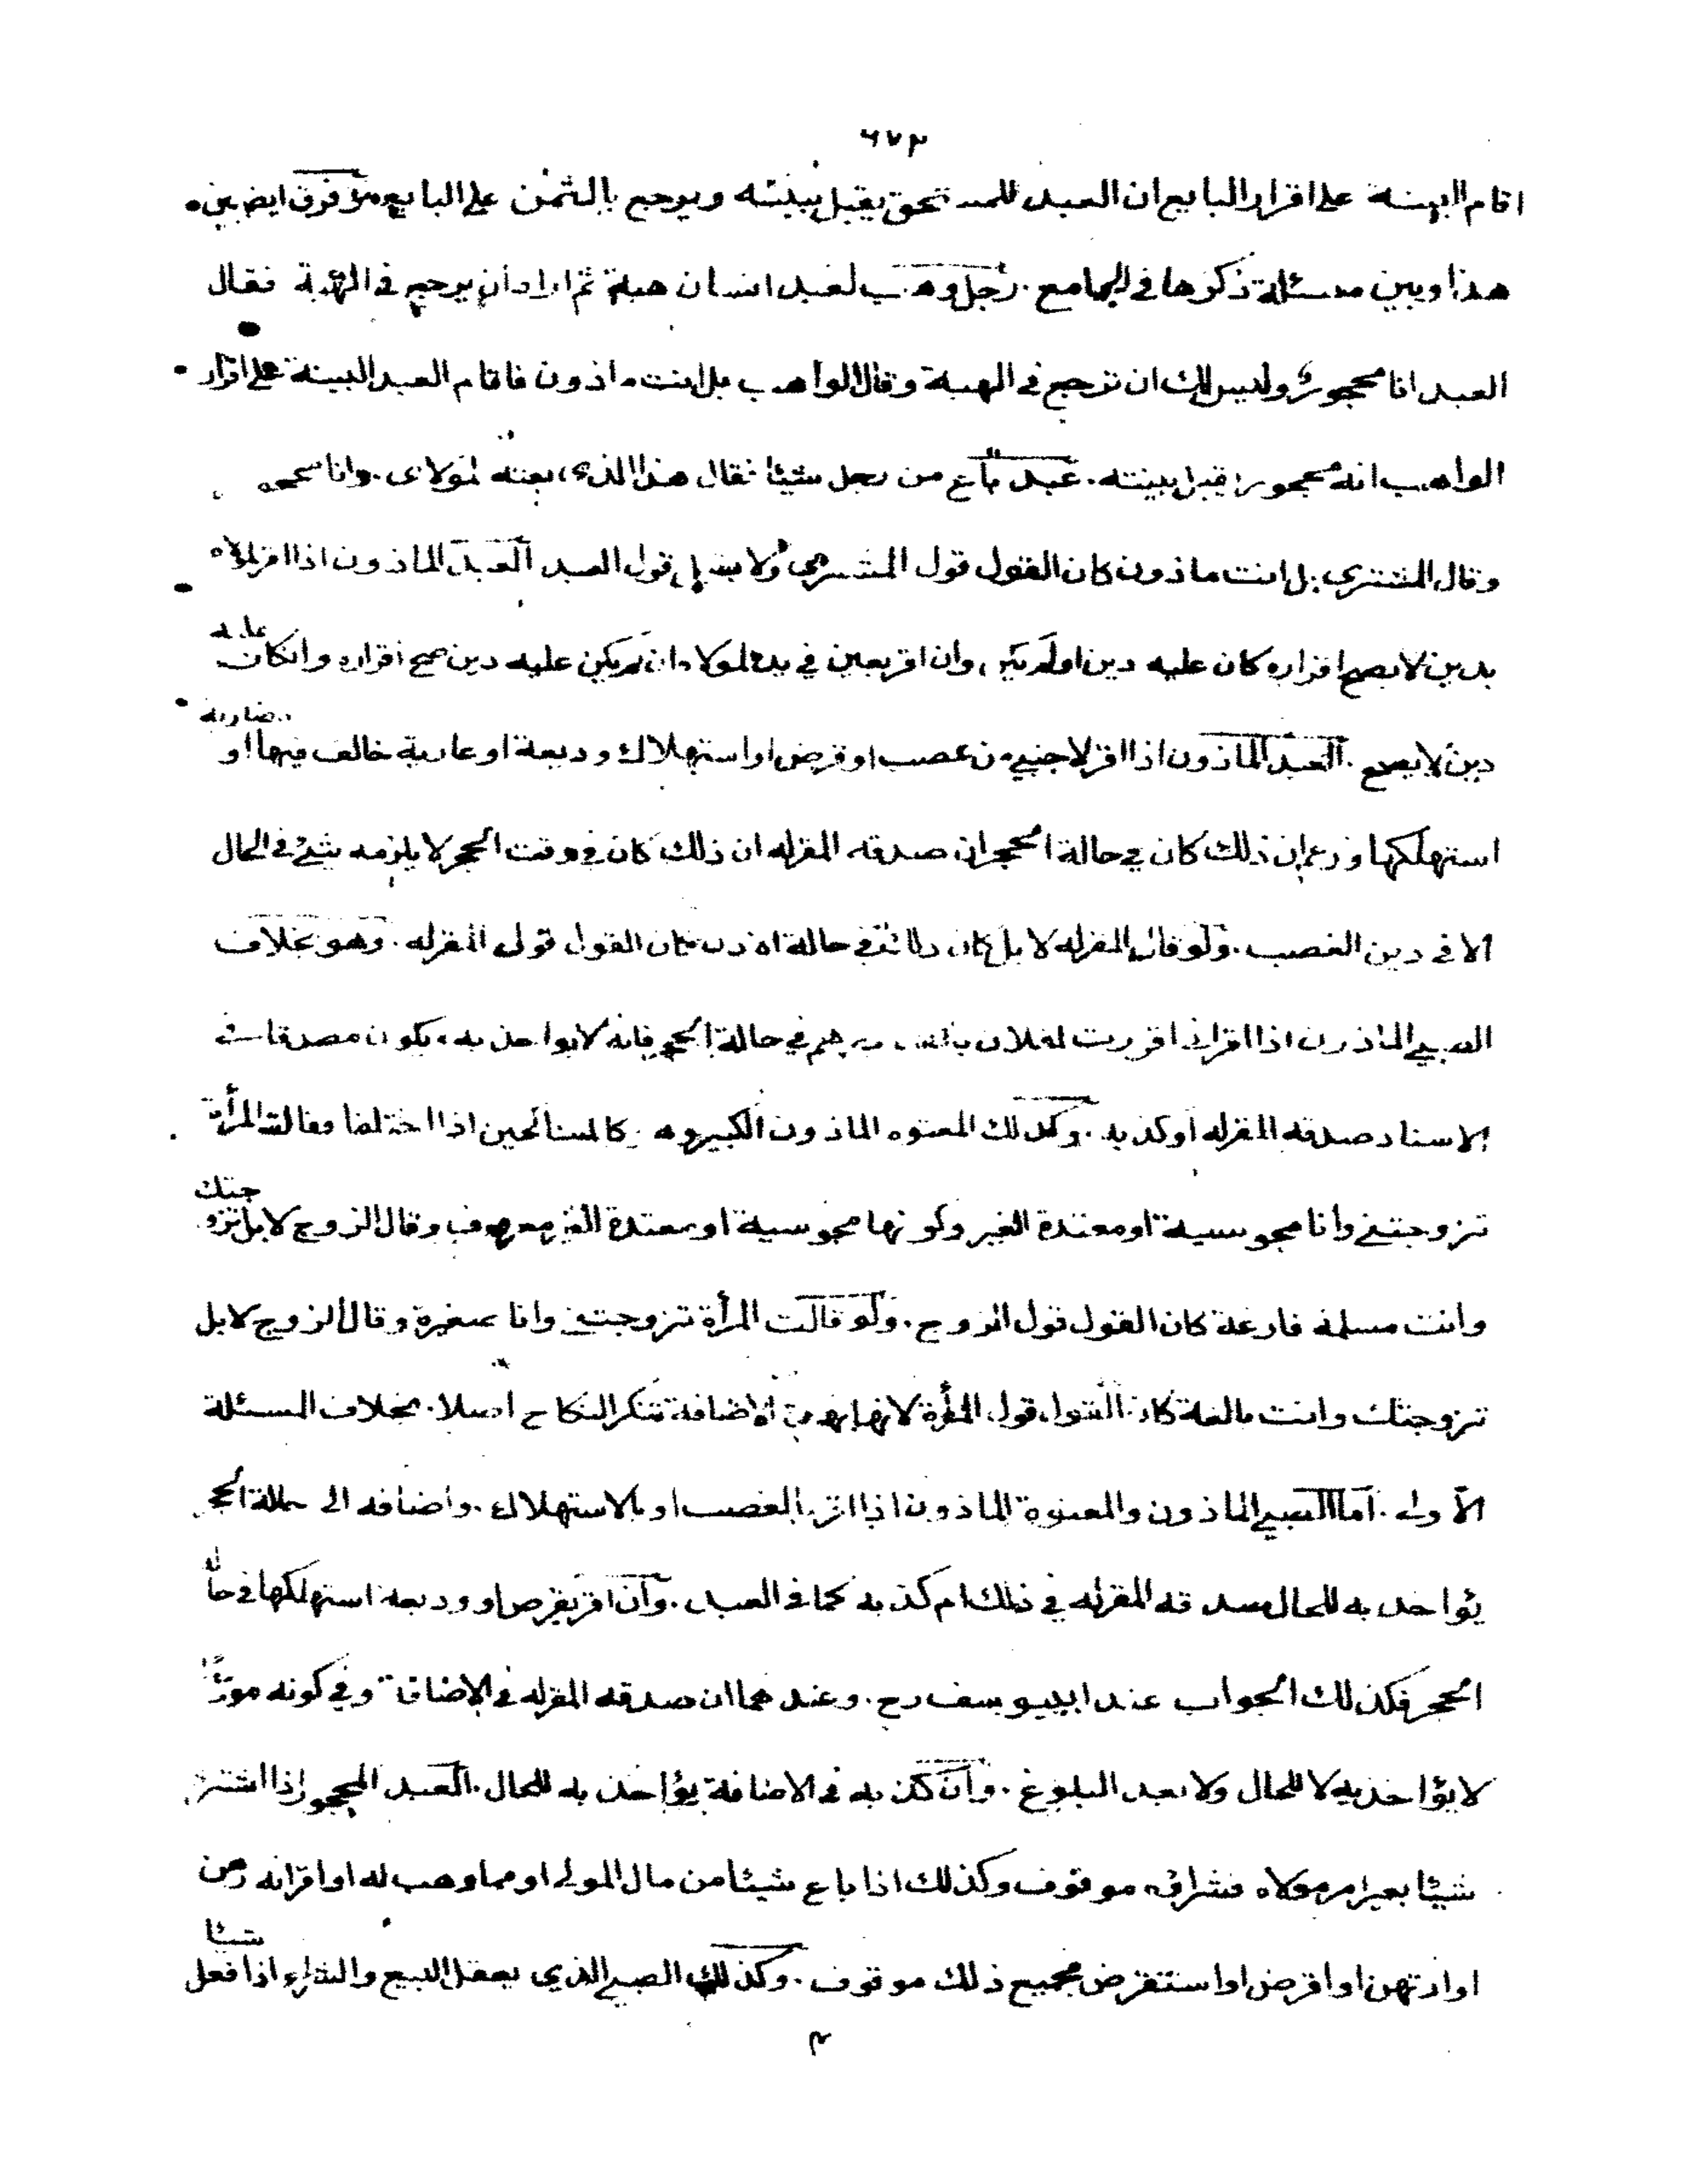 ٦٧٣
اقام البينة على اقرار البايع ان العبد للمستحق يقبل بينته ويرجع بالثمن على البايع فرق ايضا بين
هذا وبين مسئلة ذكرها فى الجامع . رجل وهب لعبد انسان هبة ثم اراد ان يرجع فى الهبة فقال
العبد انا محجور وليس لك ان ترجع فى الهبة وقال الواهب بل انت ماذون فاقام العبد البينة على اقرار
الواهب انه محجور قبل بينته . عبد باع من رجل شيئا فقال هذا الذى بعته لمولاى . وانا محجور
وقال المشترى بل انت ماذون كان القول قول المشترى ولا يقبل قول العبد العبد الماذون اذا اقر لمولاه
بدين لا يصح اقراره كان عليه دين او لم يكن وان اقر بعين فى يده لمولاه ان لم يكن عليه دين صح اقراره وان كان عليه
دين لا يصح . العبد الماذون اذا اقر لاجنبى من غصب او قرض او استهلاك وديعة او عارية خالف فيها او مضاربة
استهلكها وزعم ان ذلك كان فى حالة الحجر ان صدقه المقر له ان ذلك كان فى وقت الحجر لا يلزمه شئ فى الحال
الا فى دين الغصب . ولو قال المقر له لا بل كان ذلك فى حالة الاذن كان القول قول المقر له . وهو بخلاف
الصبى الماذون اذا اقر انى اقررت لفلان بالف درهم فى حالة الحجر فانه لا يواخذ به ويكون مصدقا فى
الاسناد صدقه المقر له او كذبه . وكذلك المعتوه الماذون الكبير وهو كالمتناكحين اذا اختلفا فقالت المرأة
تزوجتنى وانا مجوسية او معتدة الغير وكونها مجوسية او معتدة الغير معروف وقال الزوج لا بل تزوجتك
وانت مسلمة فارغة كان القول قول الزوج . ولو قالت المرأة تزوجتنى وانا صغيرة وقال الزوج لا بل
تزوجتك وانت بالغة كان القول قول المرأة لانها بهذه الاضافة تنكر النكاح اصلا . بخلاف المسئلة
الاولى . اما الصبى الماذون والمعتوه الماذون اذا اقر بالغصب او بالاستهلاك . واضافه الى حالة الحجر
يؤاخذ به للحال صدقه المقر له فى ذلك ام كذبه كما فى العبد . وان اقر بقرض او وديعة استهلكها فى حالة
الحجر فكذلك الجواب عند ابى يوسف رح . وعندهما ان صدقه المقر له فى الاضافة وفى كونه مودعا
لا يؤاخذ به لا للحال ولا بعد البلوغ . وان كذبه فى الاضافة يؤاخذ به للحال . العبد المحجور اذا اشترى
شيئا بغير امر مولاه فشراؤه موقوف وكذلك اذا باع شيئا من مال المولى او مما وهب له او اقر انه رهن
او ارتهن او اقرض او استقرض فجميع ذلك موقوف . وكذلك الصبى الذى يعقل البيع والشراء اذا فعل شيئا